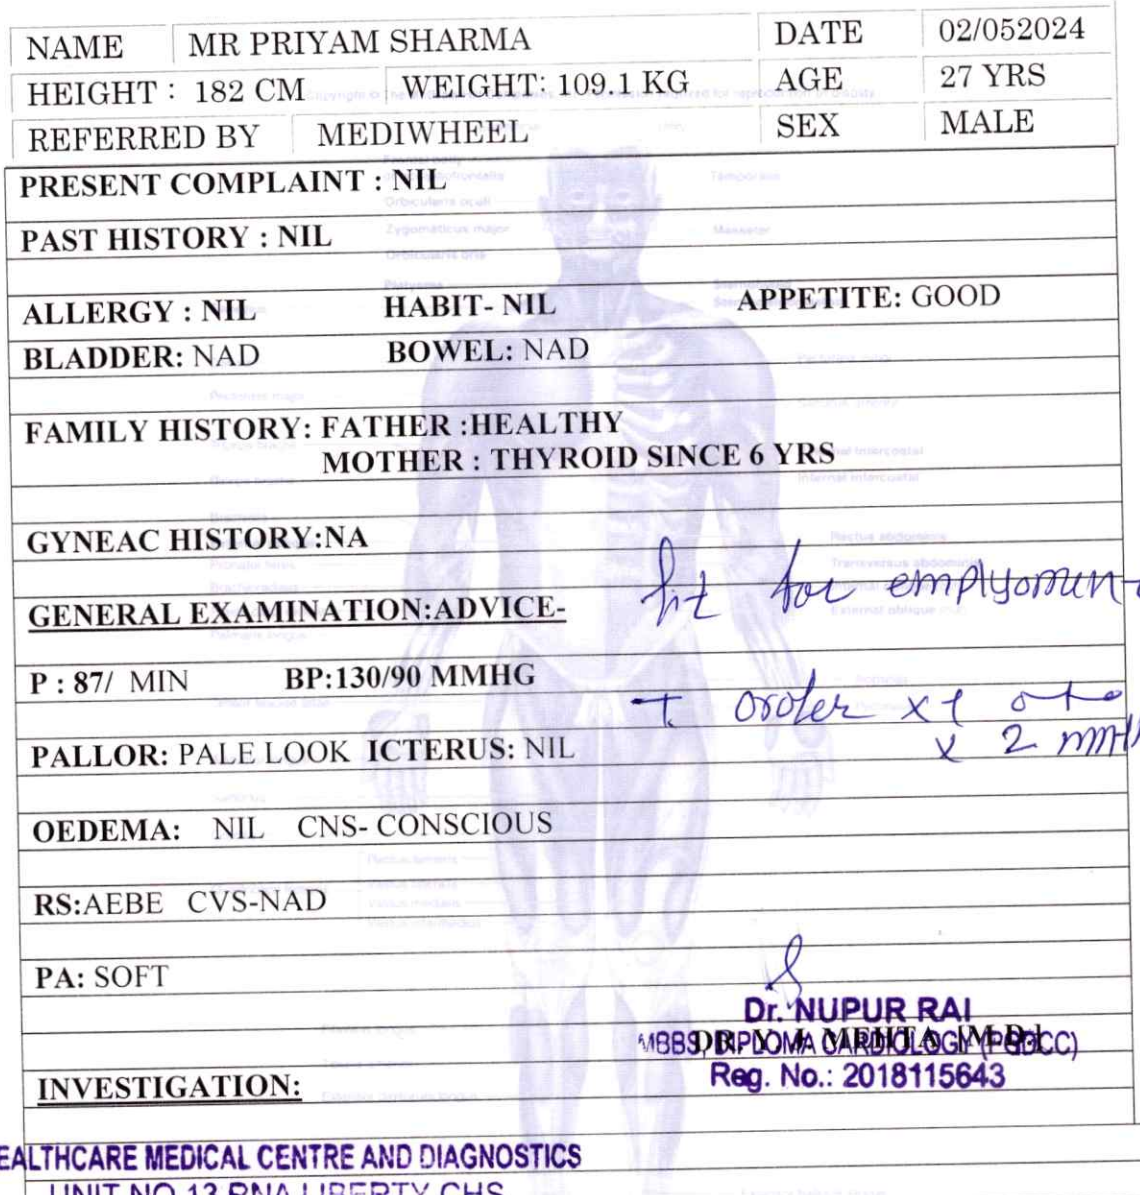 NAME MR PRIYAM SHARMA DATE 02/052024
HEIGHT : 182 CM WEIGHT: 109.1 KG AGE 27 YRS
REFERRED BY MEDIWHEEL SEX MALE
PRESENT COMPLAINT : NIL
PAST HISTORY : NIL
ALLERGY : NIL HABIT- NIL APPETITE: GOOD
BLADDER: NAD BOWEL: NAD
FAMILY HISTORY: FATHER :HEALTHY
MOTHER : THYROID SINCE 6 YRS
GYNEAC HISTORY:NA
fit for emplyoment
GENERAL EXAMINATION:ADVICE-
P : 87/ MIN BP:130/90 MMHG
x 1
PALLOR: PALE LOOK ICTERUS: NIL
x 2
OEDEMA: NIL CNS- CONSCIOUS
RS:AEBE CVS-NAD
PA: SOFT
Dr. NUPUR RAI
MBBS, DIPLOMA CARDIOLOGY (PGDCC)
DR. Y. I. MEHTA [M.D.]
Reg. No.: 2018115643
INVESTIGATION:
EALTHCARE MEDICAL CENTRE AND DIAGNOSTICS
UNIT NO 13 RNA LIBERTY CHS